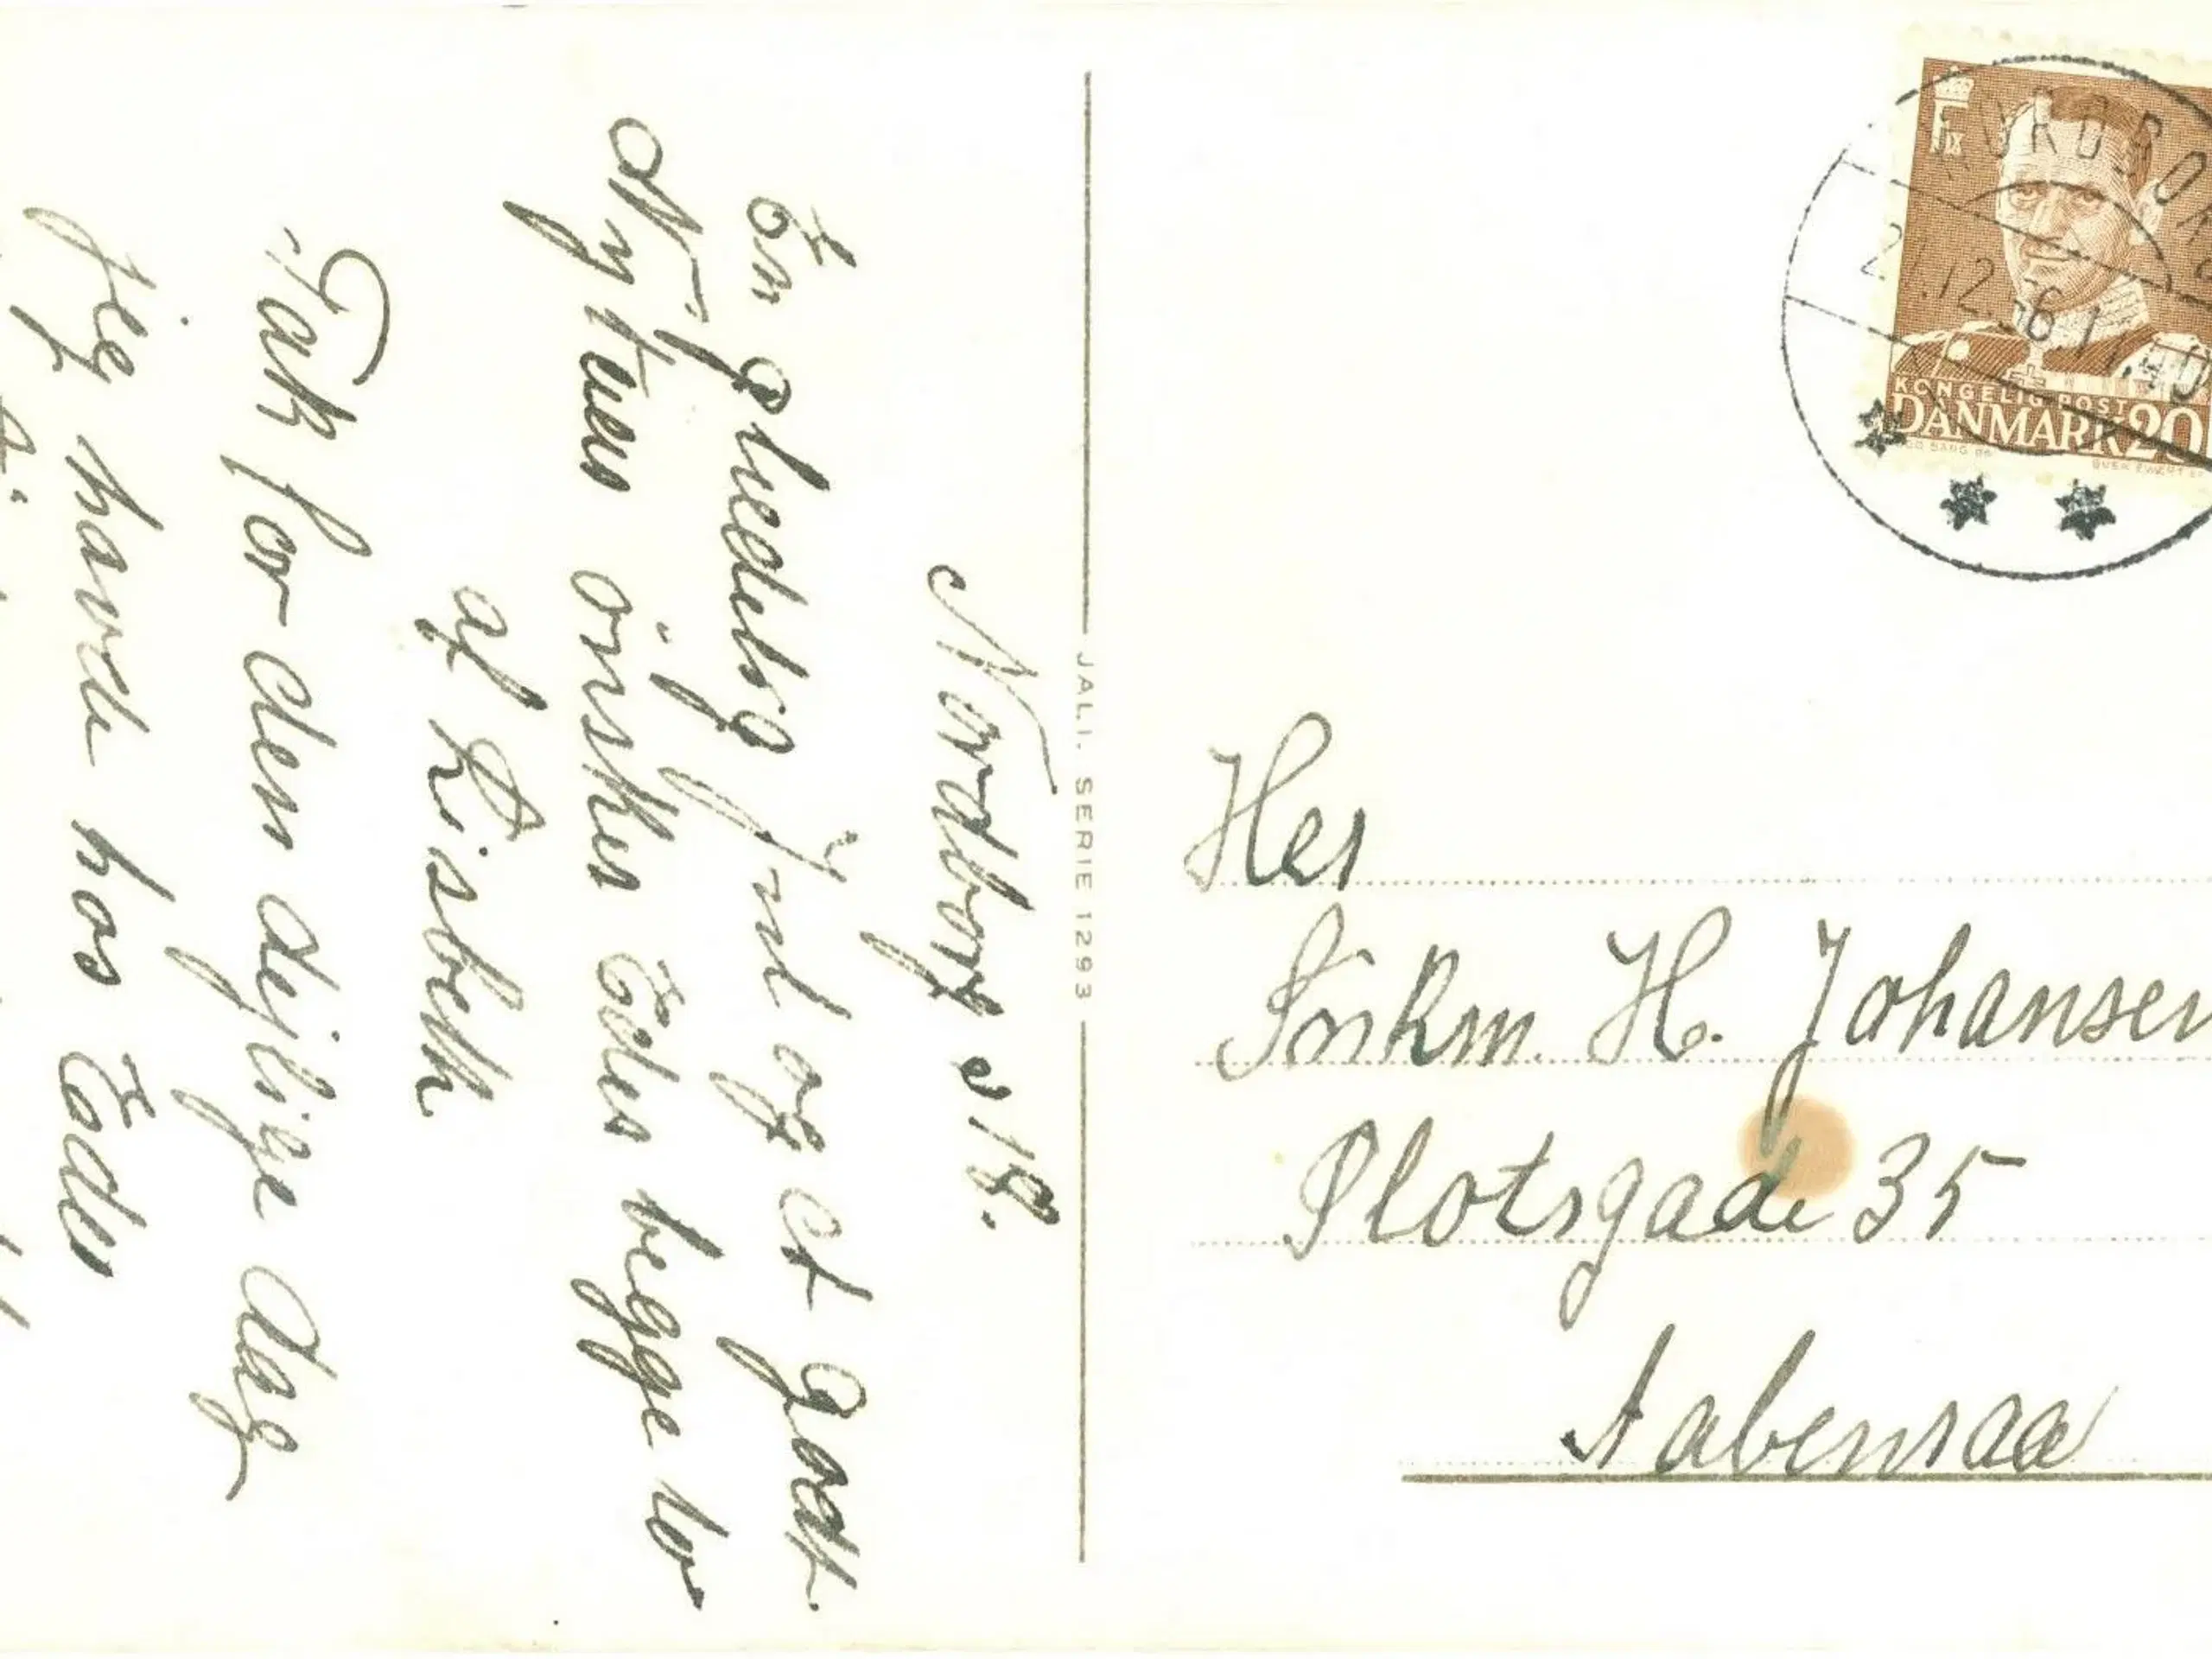 Nordborg d 18.
En glædelig Jul og et godt
Nytaar önskes Eder begge to
af Lisbeth
Tak for den dejlige dag
jeg havde hos Eder
JALI. SERIE 1293
NORDBORG
21.12.56 17
KONGELIG POST
DANMARK 20
Her
Snkm. H. Johansen
Slotsgade 35
Aabenraa